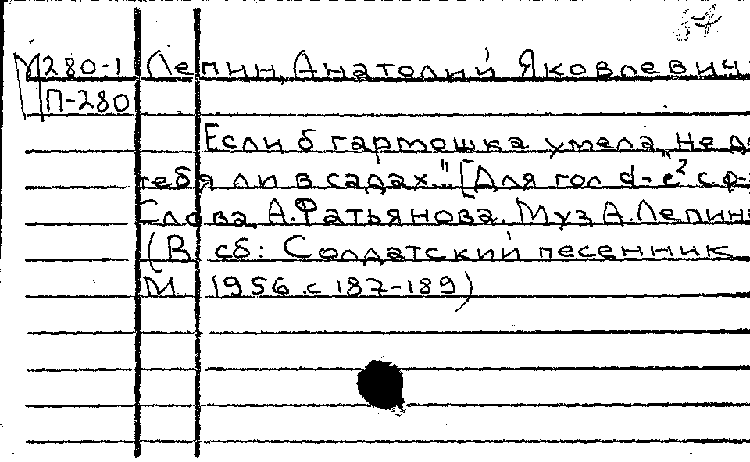 М280-1 Лепин, Анатолий Яковлевич
П-280
Если б гармошка умела, „Не для
тебя ли в садах..." [Для гол d-e² с ф-
Слова А.Фатьянова. Муз. А.Лепин
(В сб: Солдатский песенник
М 1956 с 187-189)